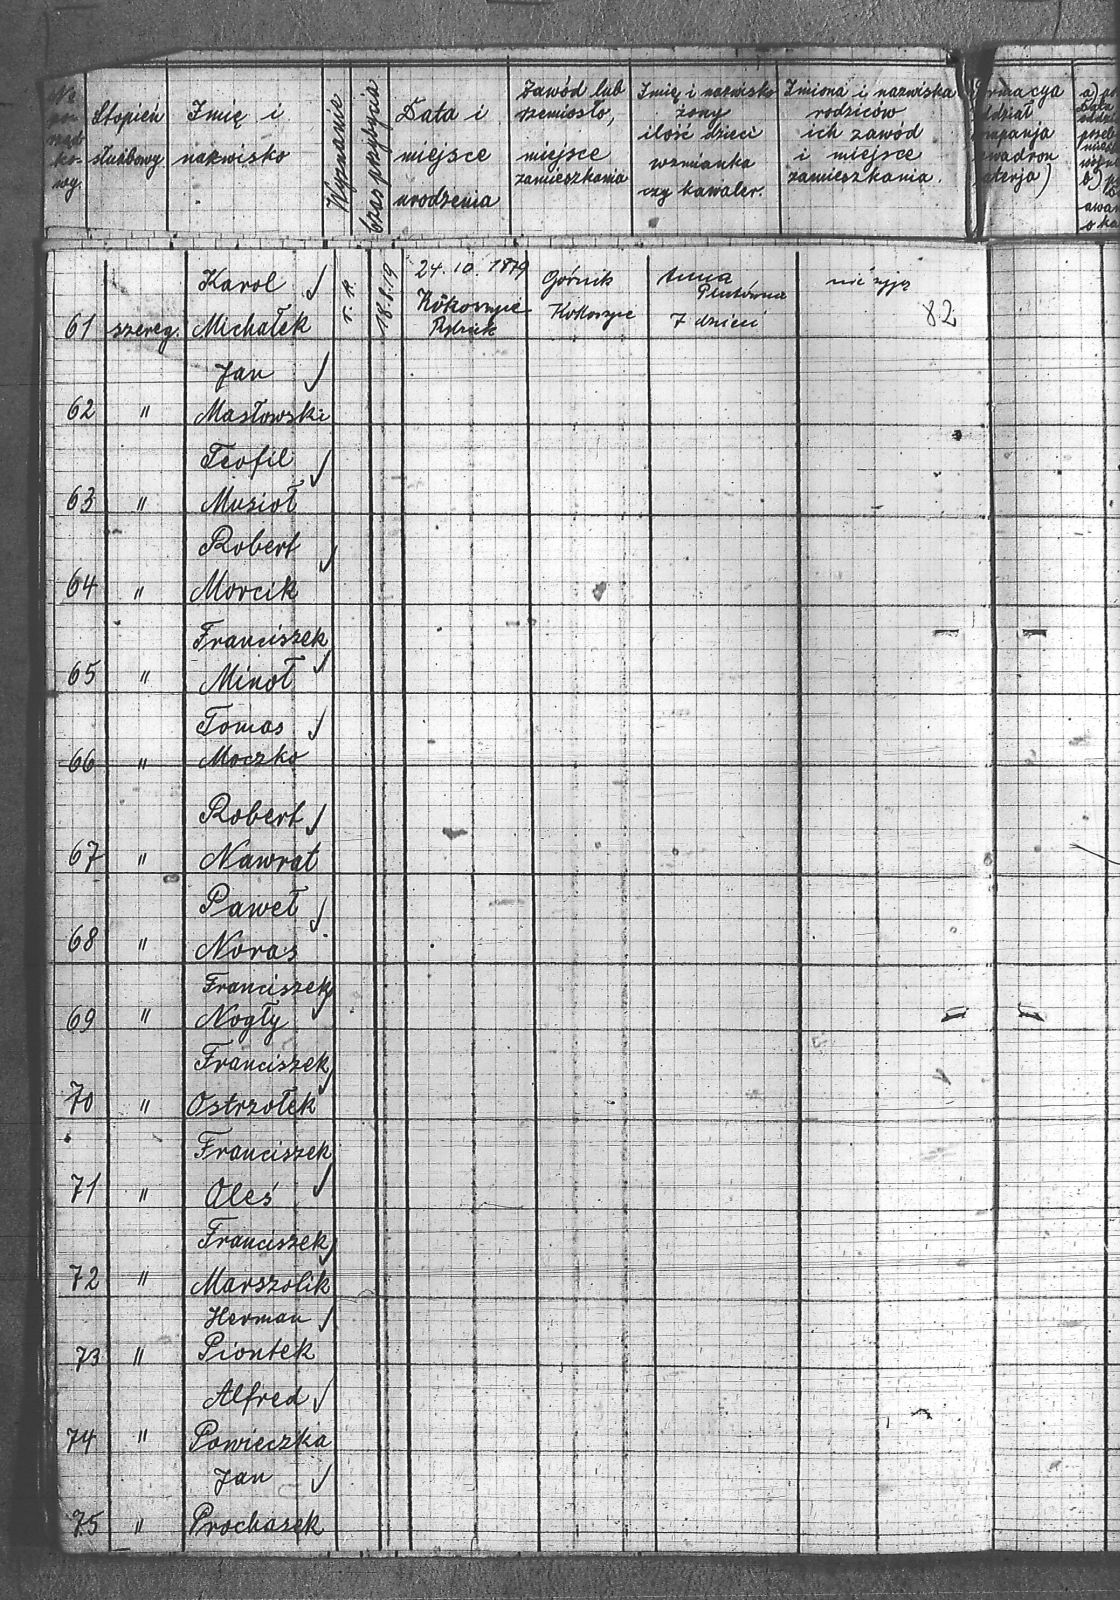 No porząd-kowy.
Stopień służbowy
Imię i nazwisko
Wyznanie
Czas przybycia
Data i miejsce urodzenia
Zawód lub rzemiosło, miejsce zamieszkania
Imię i nazwisko żony ilość dzieci wzmianka czy kawaler.
Imiona i nazwiska rodziców ich zawód i miejsce zamieszkania.
61 szereg. Karol Michałek r. k. 18.8.19 24.10.1879 Kokoszyce Rybnik Górnik Kokoszyc Anna 7 dzieci nie żyją 82
62 " Jan Masłowski
63 " Teofil Musioł
64 " Robert Morcik
65 " Franciszek Minoł
66 " Tomas Moczko
67 " Robert Nawrat
68 " Paweł Noras
69 " Franciszek Nogły
70 " Franciszek Ostrzołek
71 " Franciszek Oleś
72 " Franciszek Marszolik
73 " Herman Piontek
74 " Alfred Powieczka
75 " Jan Prochasek